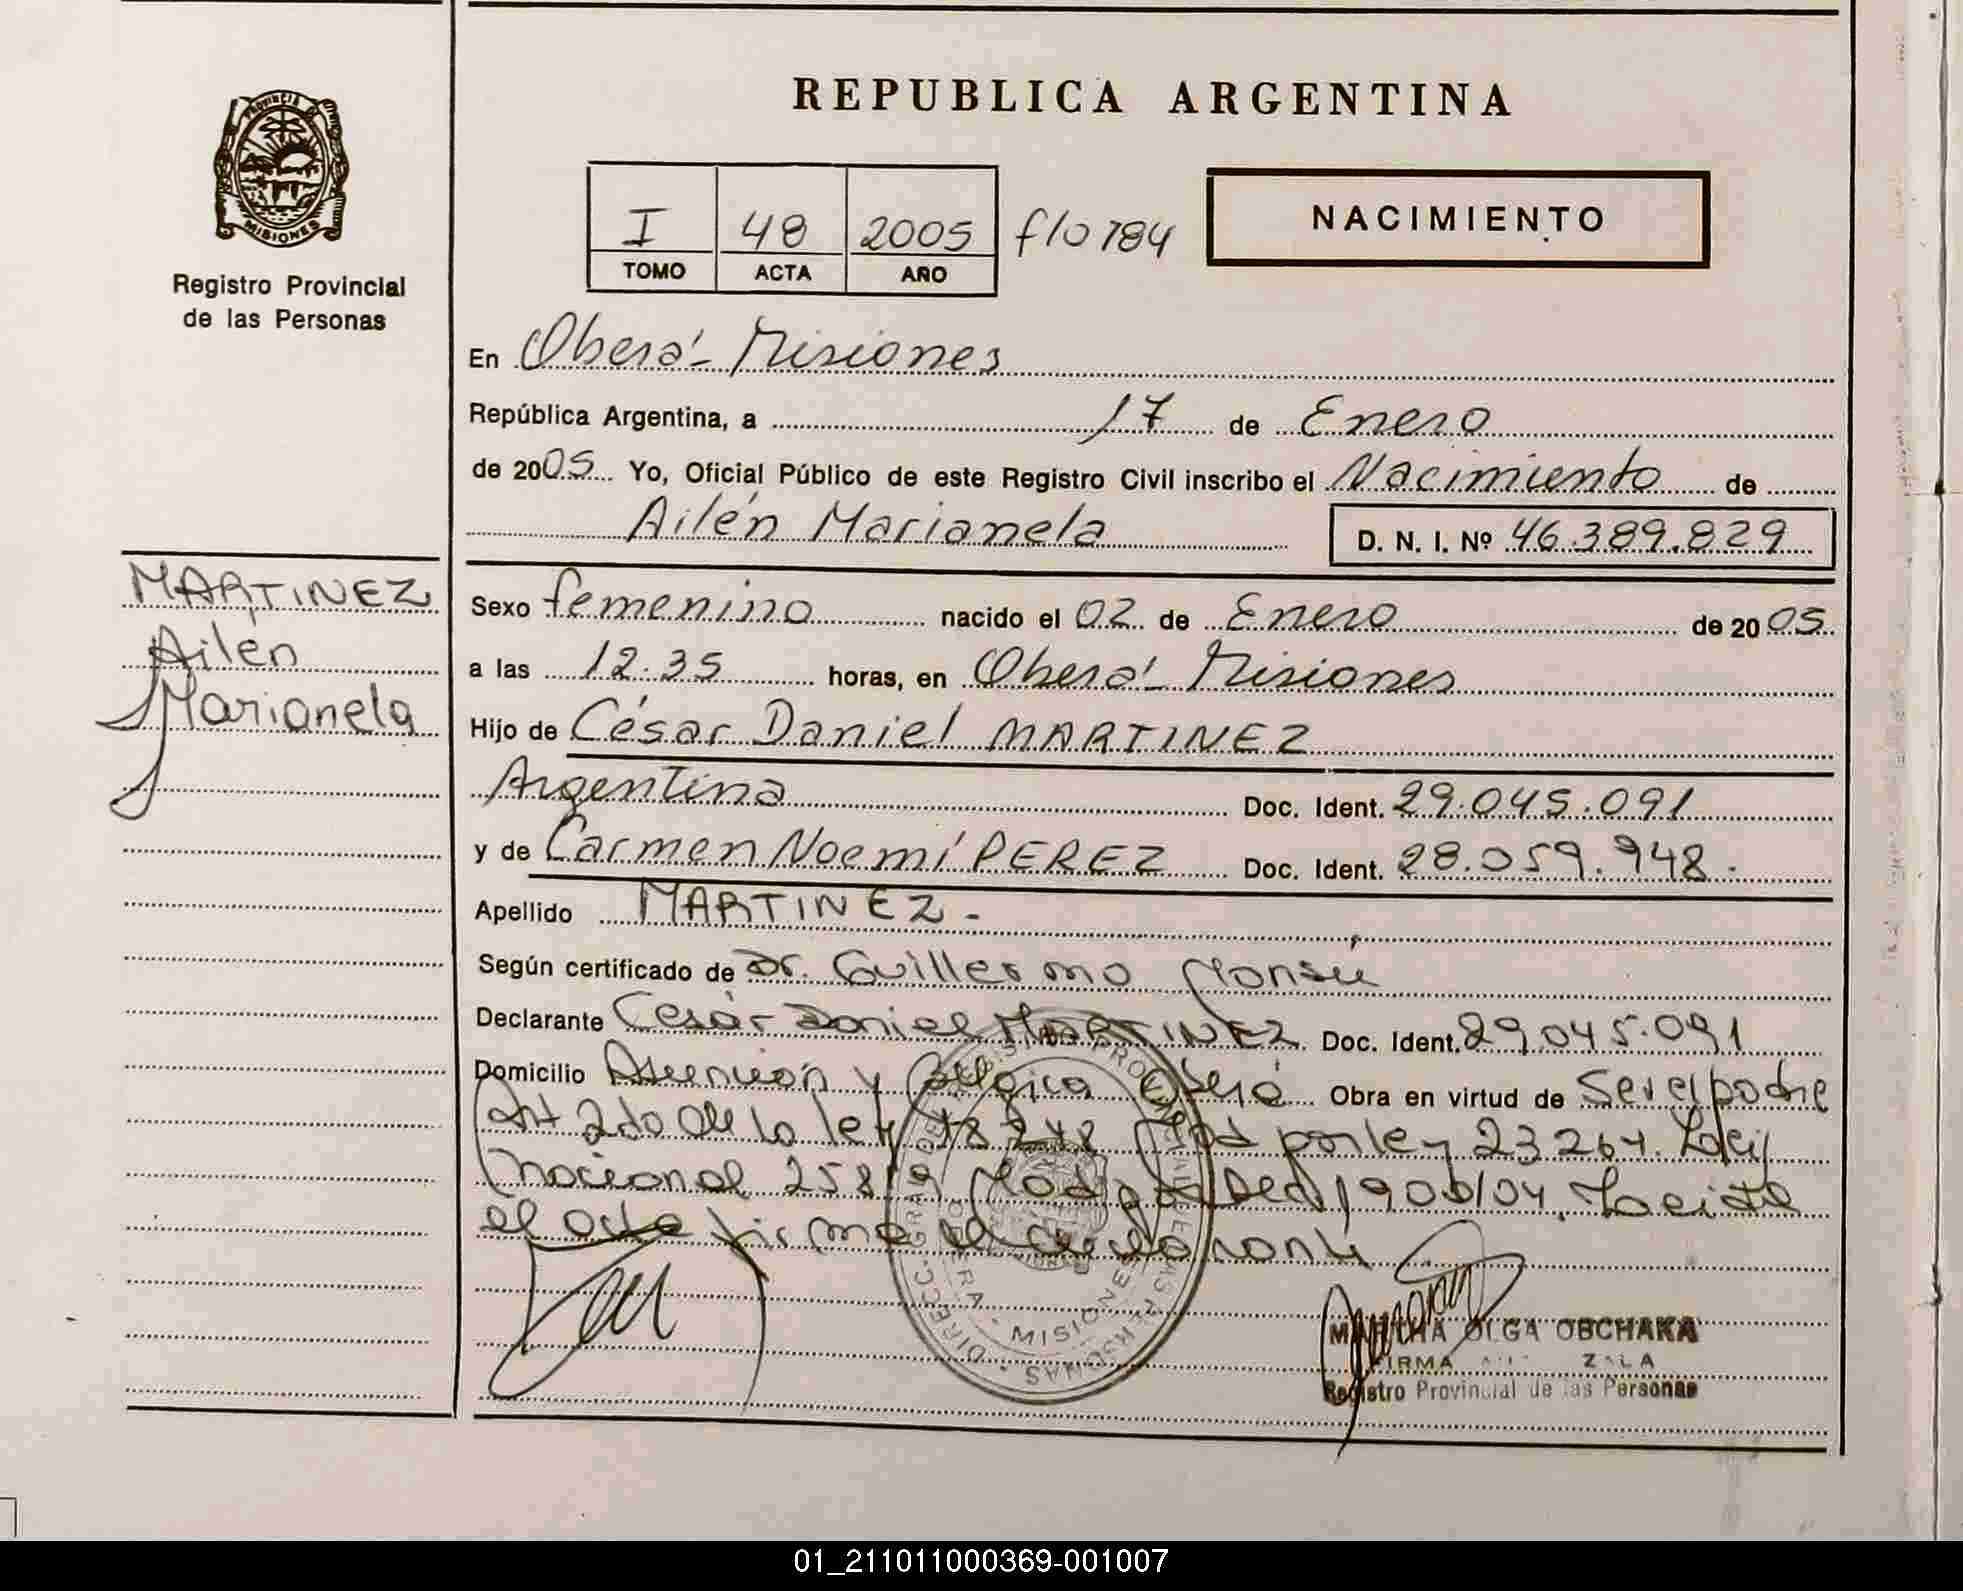 REPUBLICA ARGENTINA
PROVINCIA DE
MISIONES
Registro Provincial
de las Personas
I 48 2005 flo 184
TOMO ACTA AÑO
NACIMIENTO
En Oberá - Misiones
República Argentina, a 17 de Enero
de 2005 Yo, Oficial Público de este Registro Civil inscribo el Nacimiento de
Ailén Marianela D. N. I. Nº 46.389.829
MARTINEZ
Ailén
Marianela
Sexo femenino nacido el 02 de Enero de 2005
a las 12.35 horas, en Oberá - Misiones
Hijo de César Daniel MARTINEZ
Argentina Doc. Ident. 29.045.091
y de Carmen Noemí PEREZ Doc. Ident. 28.059.948.
Apellido MARTINEZ.
Según certificado de Dr. Guillermo Monsú
Declarante César Daniel MARTINEZ Doc. Ident. 29.045.091
Domicilio Asunción y Bélgica Oberá Obra en virtud de Ser el padre
Art 2do de la ley 18248 Mod por ley 23264. Ley
Nacional 25819 Mod por Dec. 1900/04. Leida
el acta firma el declarante
MISIONES
MARTHA OLGA OBCHAKA
FIRMA
Registro Provincial de las Personas
01_211011000369-001007